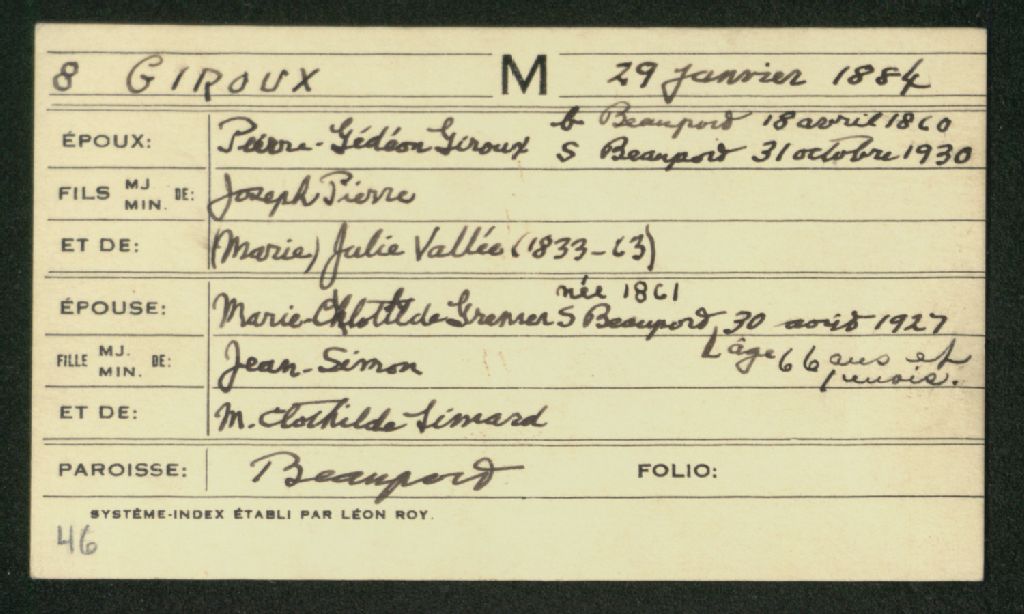 8 GIROUX M 29 janvier 1884
b Beauport 18 avril 1860
ÉPOUX: Pierre-Gédéon Giroux S Beauport 31 octobre 1930
FILS MJ MIN. DE: Joseph Pierre
ET DE: (Marie) Julie Vallée (1833-63)
née 1861
ÉPOUSE: Marie-Chlotilde Grenier S Beauport, 30 août 1927
FILLE MJ. MIN. DE: Jean-Simon âge 66 ans et
1 mois.
ET DE: M. Clothilde Simard
PAROISSE: Beauport FOLIO:
SYSTÈME-INDEX ÉTABLI PAR LÉON ROY.
46